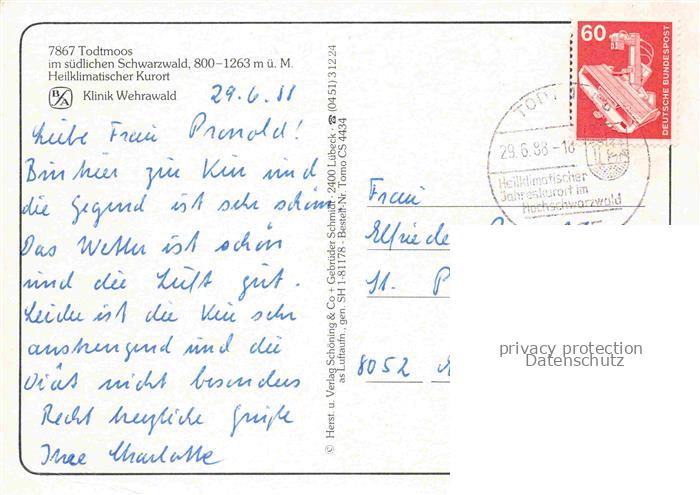 7867 Todtmoos
im südlichen Schwarzwald, 800–1263 m ü. M.
Heilklimatischer Kurort
B/A Klinik Wehrawald
29.6.88
Liebe Frau Pronold!
Bin hier zur Kur und
die Gegend ist sehr schön.
Das Wetter ist schön
und die Luft gut.
Leider ist die Kur sehr
anstrengend und die
Diät nicht besonders
Recht herzliche Grüße
Ihre Charlotte
© Herst. u. Verlag Schöning & Co + Gebrüder Schmidt, 2400 Lübeck · ☎ (04 51) 3 12 24
as Luftaufn., gen. SH 1-81178 · Bestell-Nr. Tomo CS 4434
60
DEUTSCHE BUNDESPOST
29.6.88-18
Heilklimatischer
Jahreskurort im
Hochschwarzwald
Frau
Elfriede
St. P
8052
privacy protection
Datenschutz